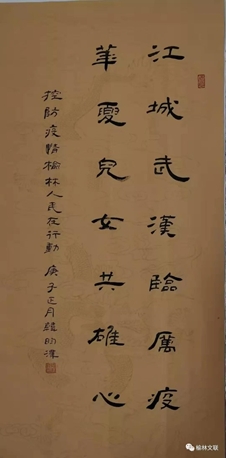 江城武漢臨厲疫
華夏兒女共雄心
控防疫情榆林人民在行動 庚子正月
榆林文联